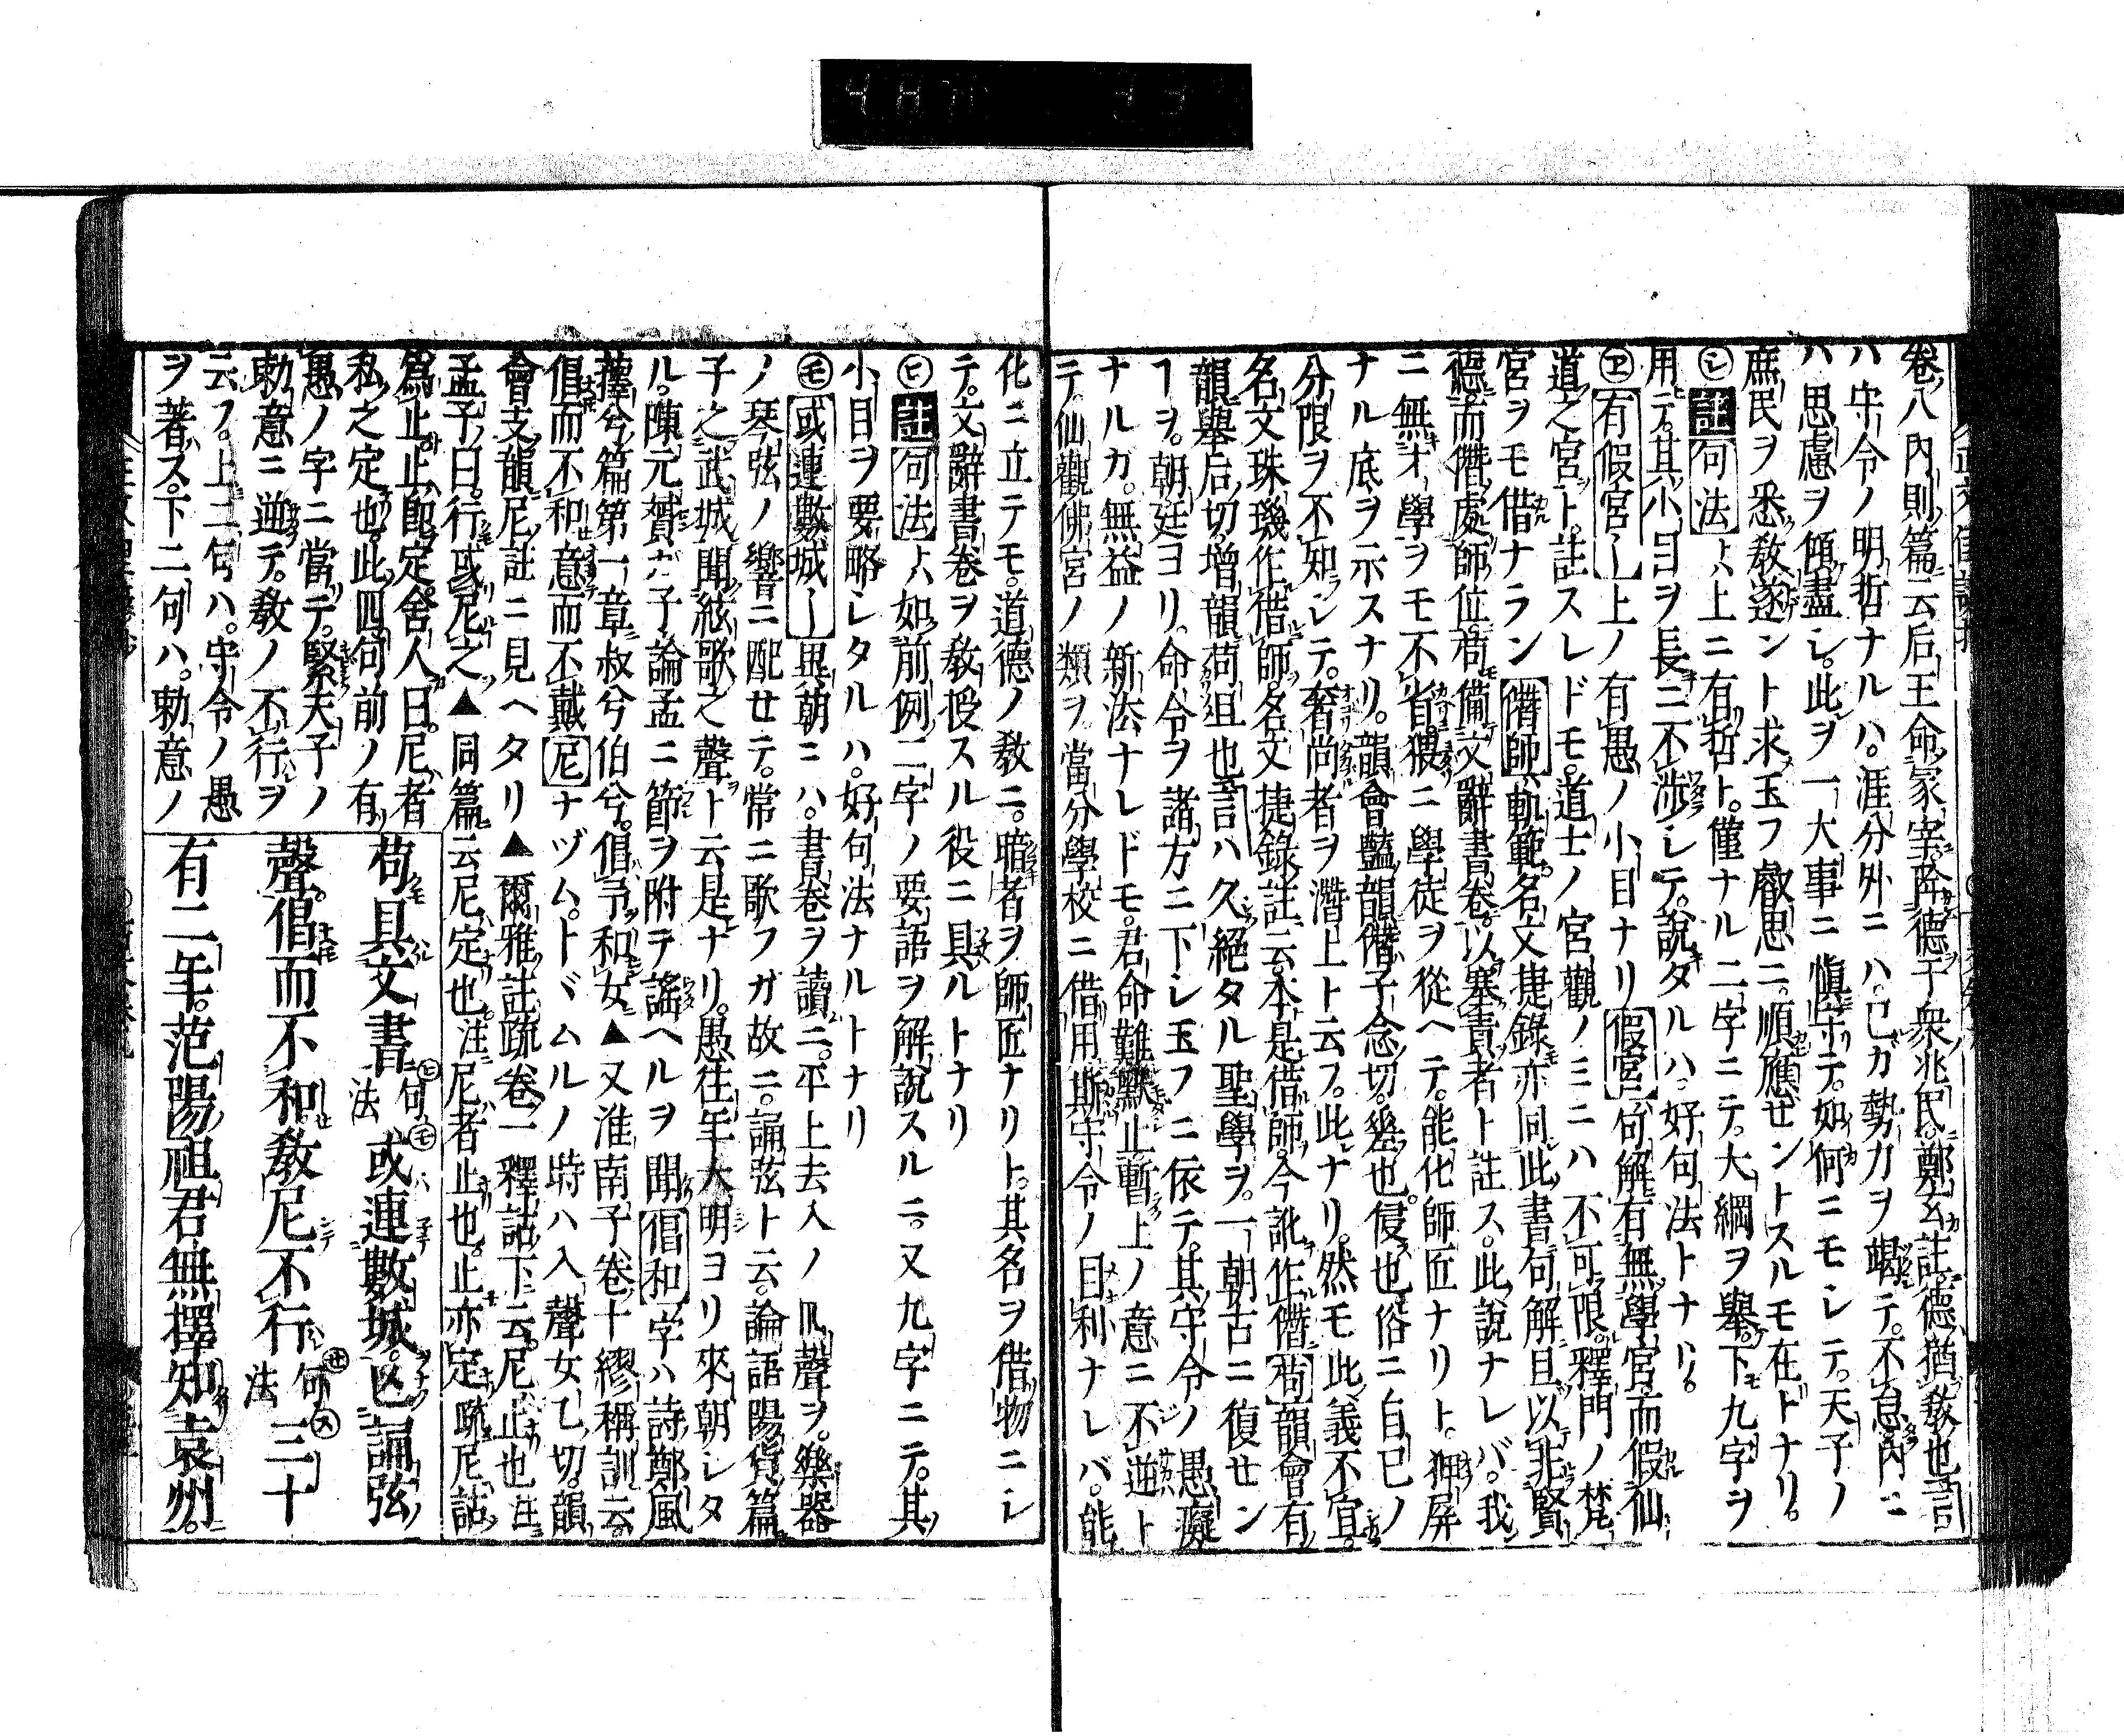 卷八内則篇云后王命冢宰降德于衆兆民鄭玄註德猶敎也言
ハ守令ノ明哲ナルハ涯分外ニハ已カ勢力ヲ竭テ不怠内ニ
ハ思慮ヲ傾盡シ此ヲ一大事ニ愼守テ如何ニモシテ天子ノ
庶民ヲ悉敎遂ント求玉フ叡思ニ順應セントスルモ在トナリ
㋛註句法トハ上ニ有哲ト僅ナル二字ニテ大綱ヲ擧下モ九字ヲ
用テ其小目ヲ長ニ不渉シテ說タルハ好句法トナリ
㋓有假宮〡上ノ有愚ノ小目ナリ假宮句解有無學宮而假仙
道之宮ト註スレドモ道士ノ宮觀ノミニハ不可限釋門ノ梵
宮ヲモ借ナラン僭師軌範名文捷錄亦同此書句解且以非賢
德而僭處師位苟備文辭書卷以塞責者ト註ス此說ナレバ我
ニ無才學ヲモ不省猥ニ學徒ヲ從ヘテ能化師匠ナリト狎屏
ナル底ヲ示スナリ韻會豔韻僭子念切差也侵也俗ニ自己ノ
分限ヲ不知シテ奢尚者ヲ潛上ト云フ此ナリ然モ此義不宜
名文珠璣作借師名文捷錄註云本是借師今訛作僭苟韻會有
韻擧后切增韻苟且也言ハ久絕タル聖學ヲ一朝古ニ復セン
ヿヲ朝廷ヨリ命令ヲ諸方ニ下シ玉フニ依テ其守令ノ愚癡
ナルカ無益ノ新法ナレドモ君命難默止暫上ノ意ニ不逆ト
テ仙觀佛宮ノ類ヲ當分學校ニ借用斯守令ノ目利ナレバ能
化ニ立テモ道德ノ敎ニ暗者ヲ師匠ナリト其名ヲ借物ニシ
テ文辭書卷ヲ敎授スル役ニ具ルトナリ
㋪註句法トハ如前例二字ノ要語ヲ解說スルニ又九字ニテ其
小目ヲ要略シタルハ好句法ナルトナリ
㋲或連數城〡異朝ニハ書卷ヲ讀ニ平上去入ノ四聲ヲ樂器
ノ琴弦ノ響ニ配セテ常ニ歌フガ故ニ誦弦ト云論語陽貨篇
子之武城聞絃歌之聲ト云是ナリ愚往年大明ヨリ來朝シタ
ル陳元贇ガ子論孟ニ節ヲ附テ謠ヘルヲ聞倡和字ハ詩鄭風
蘀兮篇第一章叔兮伯兮倡予和女▲又淮南子卷十繆稱訓云
倡而不和意而不戴尼ナヅムトヾムルノ時ハ入聲女乙切韻
會支韻尼註ニ見ヘタリ▲爾雅註疏卷一釋詁下云尼止也註
孟子曰行或尼之▲同篇云尼定也注尼者止也止亦定疏尼詁
爲止止卽定舍人曰尼者
私之定也此四句前ノ有
愚ノ字ニ當テ緊天子ノ
勅意ニ逆テ敎ノ不行ヲ
云フ上二句ハ守令ノ愚
ヲ著ス下二句ハ勅意ノ
苟具文書㋪句法㋲或連數城亡誦弦
聲倡而不和敎尼不行㋝句法㋜三十
有二年范陽祖君無擇知袁州